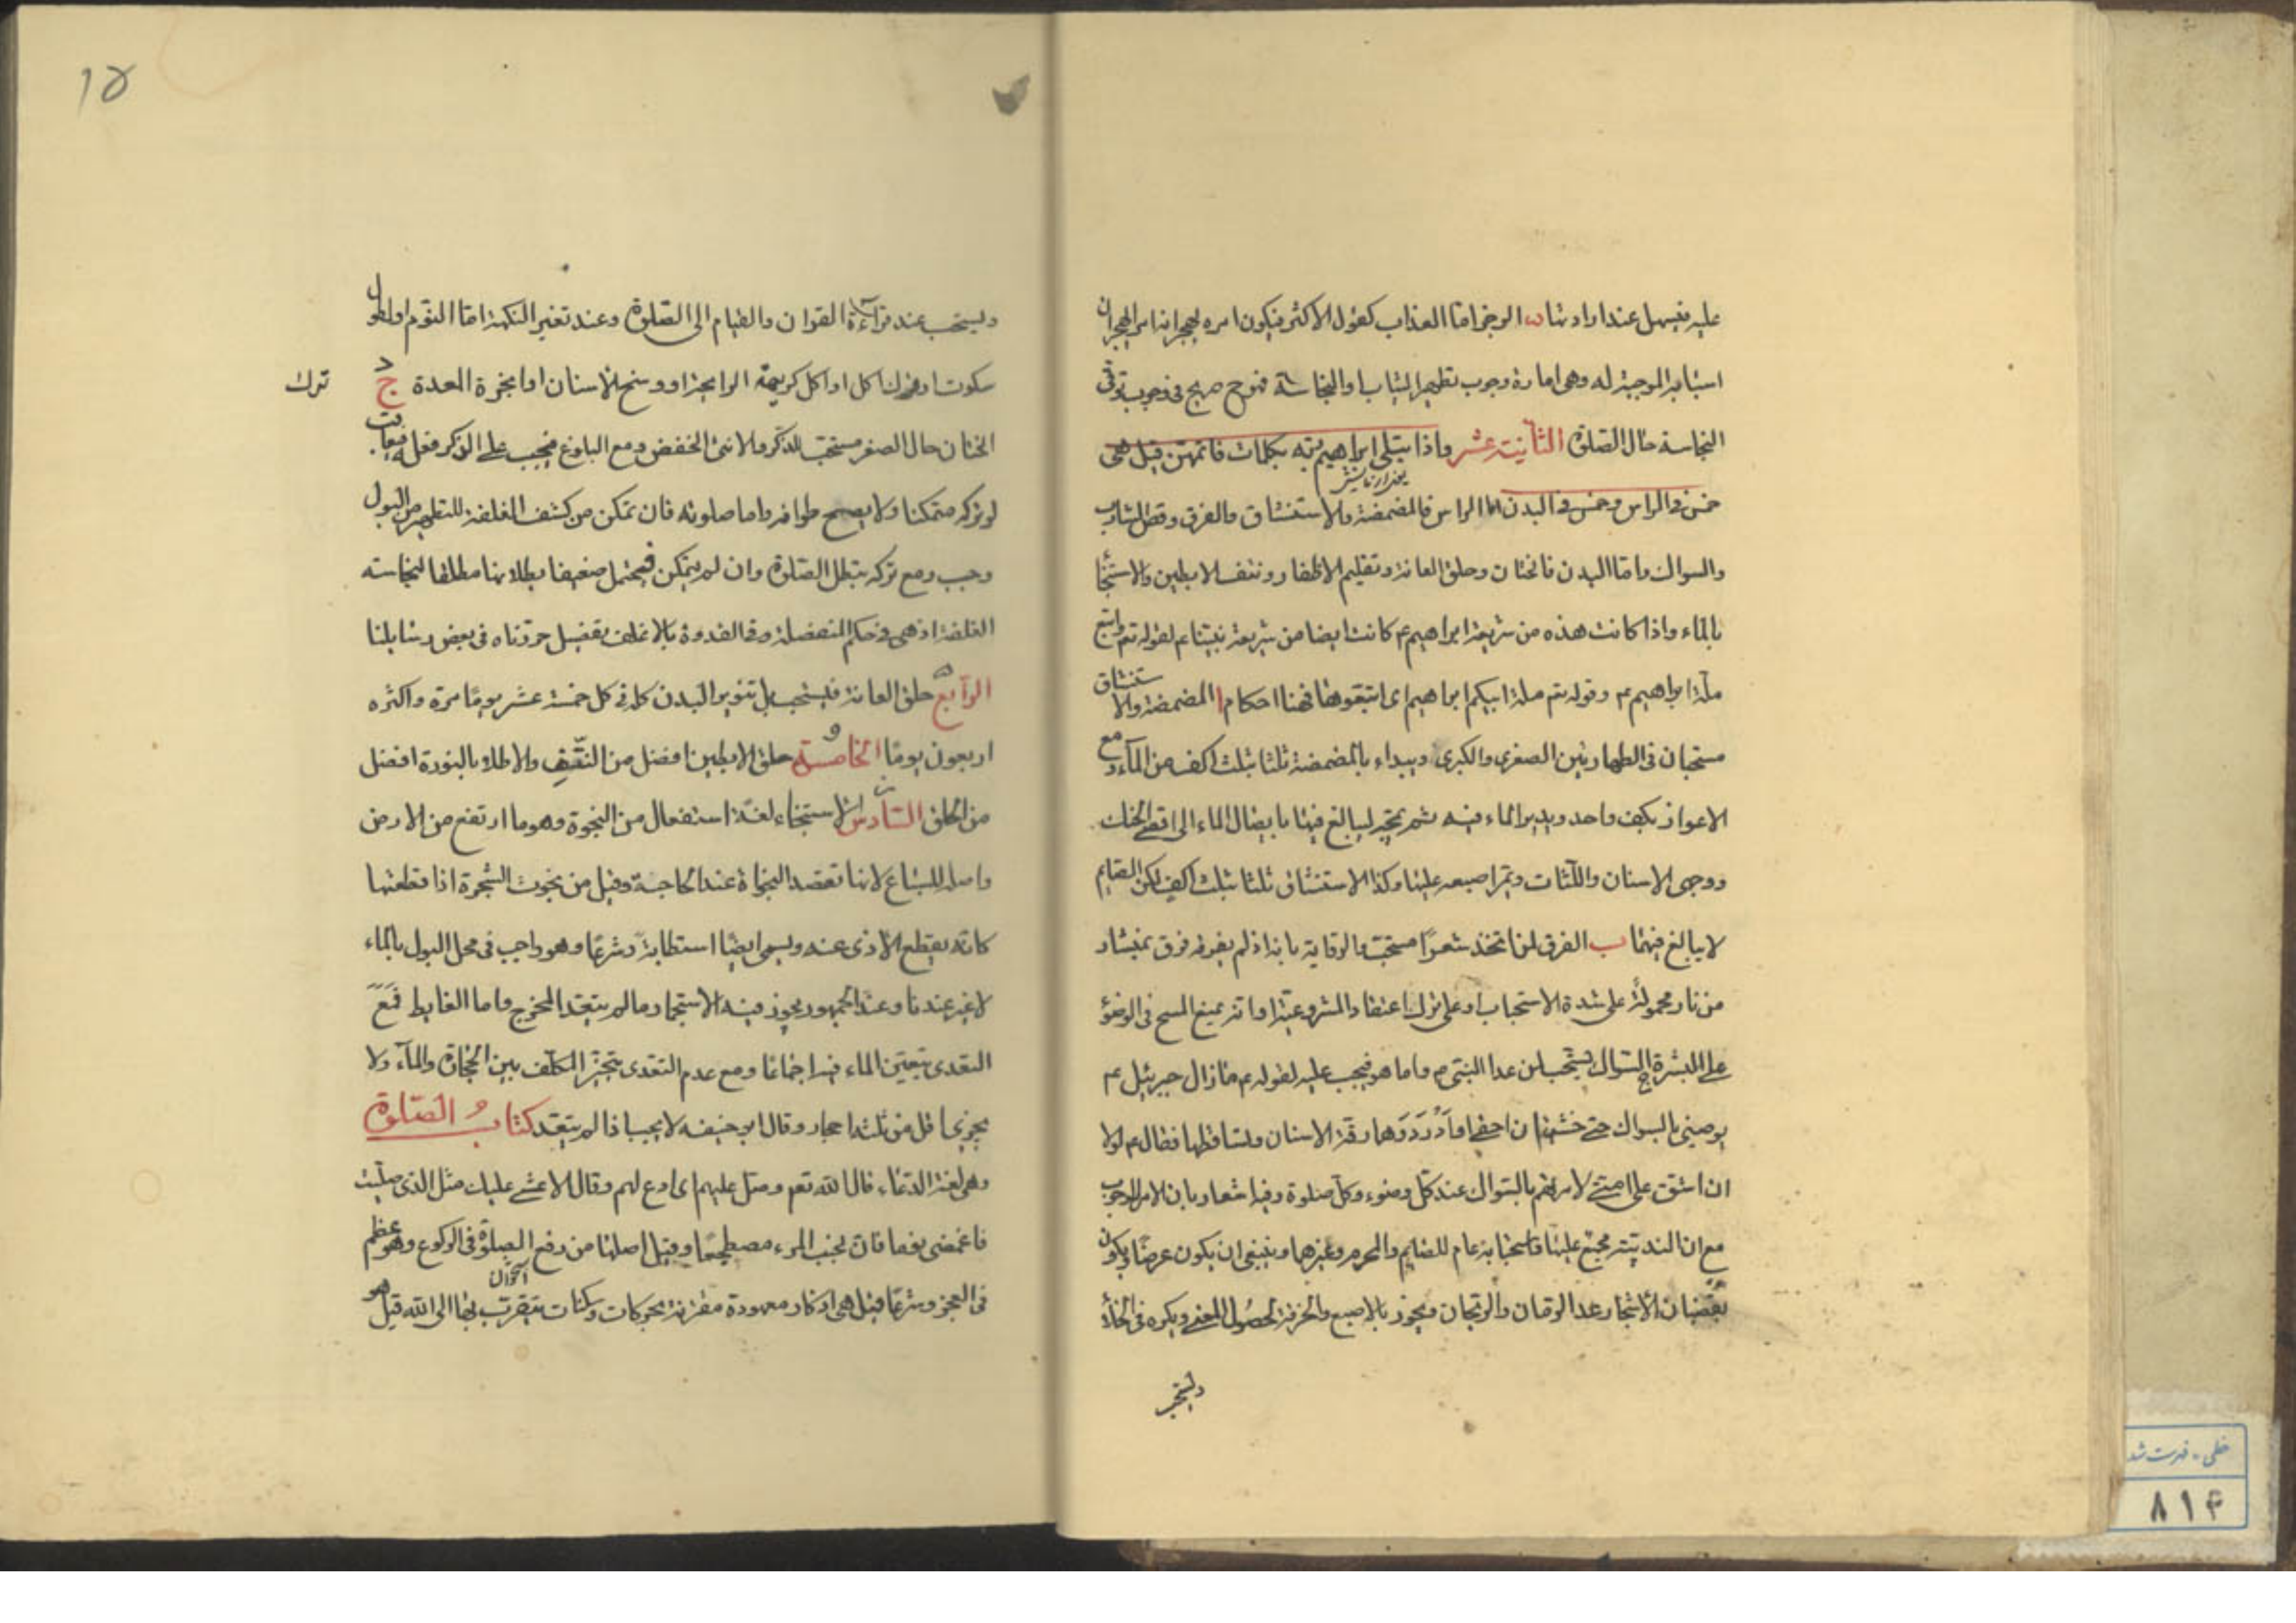 عليه فيسهل عند ارادتها ب الرجز اما العذاب كقول الاكثر فيكون امره لهجرانه امر الهجران
اسبابه الموجبة له وهى امارة وجوب تطهير الثياب او النجاسة فهوح صريح فى وجوب توقى
النجاسة حال الصلوة الثانية عشر واذ ابتلى ابراهيم ربه بكلمات فاتمهن قيل هى
خمس فى الراس وخمس فى البدن اما الراس فالمضمضة والاستنشاق والفرق وقص الشارب
والسواك واما البدن فالختان وحلق العانة وتقليم الاظفار ونتف الابطين والاستنجا
بالماء واذا كانت هذه من شريعة ابراهيم ع كانت ايضا من شريعة نبينا ع لقوله تع واتبع
ملة ابراهيم ع وقوله تع ملة ابيكم ابراهيم اى اتبعوها فهنا احكام ا المضمضة والاستنشاق
مستحبان فى الطهارتين الصغرى والكبرى ويبداء بالمضمضة ثلثا بثلث اكف من الماء ومع
الاعواز بكف واحد ويدير الماء فيه ثم يمجه ليبالغ فيها بايصال الماء الى اقصى الحنك
ووجهى الاسنان واللثات ويمر اصبعه عليها وكذا الاستنشاق ثلثا بثلث اكف لكن الصايم
لا يبالغ فيهما ب الفرق لمن اتخذ شعرا مستحب والرواية بانه اذ لم يفرقه فرق بمنشار
من نار محمولة على شدة الاستحباب او على ترك اعتقاد المشروعية او انه يمنع المسح فى الوضوء
على البشرة ج السواك يستحب لمن عدا النبى ص واما هو فيجب عليه لقوله ع ما زال جبرئيل ع
يوصينى بالسواك حتى خشيت ان احفى او ادرد وهما رقة الاسنان وتساقطها فقال ع لولا
ان اشق على امتى لامرتهم بالسواك عند كل وضوء وكل صلوة وفيه اشعار بان الامر للوجوب
مع ان الندبية مجمع عليها واستحبابه عام للصايم والمحرم وغيرهما وينبغى ان يكون عرضا ويكون
بقضبان الاشجار عدا الرمان والريحان ويجوز بالاصبع والخرقة لحصول المعنى ويكره فى الخلا
ويستحب
١٥
ويستحب عند قراءة القرآن والقيام الى الصلوة وعند تغير النكهة اما النوم او لطول
سكوت او ترك اكل او اكل كريهة الرايحة او وسخ الاسنان او ابخرة المعدة ج
ترك
الختان حال الصغر مستحب للذكر وللانثى الخفض ومع البلوغ فيجب على الذكر فعله فيعاقب
لو تركه متمكنا ولا يصح طوافه واما صلوته فان تمكن من كشف الغلفة للتطهير من البول
وجب ومع تركه تبطل الصلوة وان لم يتمكن فيحتمل ضعيفا بطلانها مطلقا لنجاسته
الغلفة اذ هى فى حكم المنفصلة وفى القدوة بالاغلف تفصيل حررناه فى بعض رسايلنا
الرابع حلق العانة فيستحب بل تنوير البدن كله فى كل خمسة عشر يوما مرة واكثره
اربعون يوما الخامسة حلق الابطين افضل من النتف والاطلاء بالنورة افضل
من الحلق السادس الاستنجاء لغة استفعال من النجوة وهو ما ارتفع من الارض
واصله للسباع لانها تقصد النجاة عند الحاجة وقيل من نجوت الشجرة اذا قطعتها
كانه يقطع الاذى عنه ويسمى ايضا استطابة وشرعا وهو واجب فى محل البول بالماء
لا غير عندنا وعند الجمهور يجوز فيه الاستجمار ما لم يتعد المخرج واما الغايط فمع
التعدى يتعين الماء فيه اجماعا ومع عدم التعدى يتخير المكلف بين الحجارة والماء ولا
يجزى اقل من ثلثة احجار وقال ابو حنيفه لا يجب اذا لم يتعد كتاب الصلوة
وهى لغة الدعاء قال الله تع وصل عليهم اى ادع لهم وقال الاعشى عليك مثل الذى صليت
فاغمضى يوما فان لجنب المرء مضطجعا وقيل اصلها من رفع الصلوة فى الركوع وهو عظم
فى العجز وشرعا قيل هى اذكار معهودة مقترنة بحركات وسكنات يتقرب بها الى الله قيل هو
خطى - فهرست شد
٨١٤